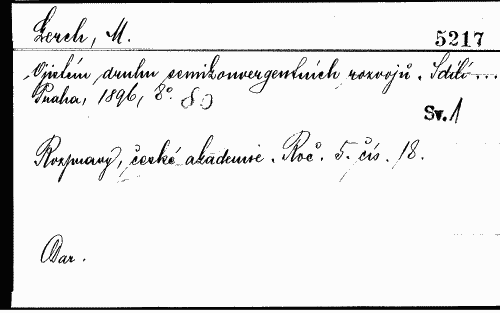 Lerch, M.
5217
O jistém druhu semikonvergentních rozvojů. Sdílí ...
Praha, 1896, 8°.
Sv. 1
Rozpravy, české akademie. Roč. 5. čís. 18.
Dar.